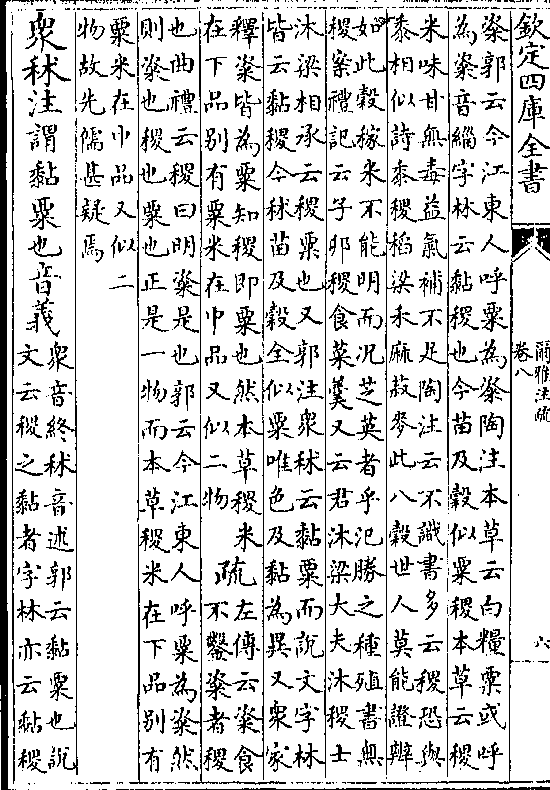 欽定四庫全書
爾雅注疏
卷八
六
粢郭云今江東人呼粟為粢陶注本草云白糧粟或呼
為粢音緇字林云黏稷也今苗及穀似粟稷本草云稷
米味甘無毒益氣補不足陶注云不識書多云稷恐與
黍相似詩黍稷稻梁禾麻菽麥此八穀世人莫能證辨
如此穀稼米不能明而況芝英者乎氾勝之種殖書無
稷案禮記云子卯稷食菜羮又云君沐梁大夫沐稷士
沐梁相承云稷粟也又郭注衆秫云黏粟而說文字林
皆云黏稷今秫苗及穀全似粟唯色及黏為異又衆家
釋粢皆為粟知稷即粟也然本草稷米
在下品别有粟米在中品又似二物
疏
左傳云粢食
不鑿粢者稷
也曲禮云稷曰明粢是也郭云今江東人呼粟為粢然
則粢也稷也粟也正是一物而本草稷米在下品别有
粟米在中品又似二
物故先儒甚疑焉
衆秫注謂黏粟也音義
衆音終秫音述郭云黏粟也說
文云稷之黏者字林亦云黏稷